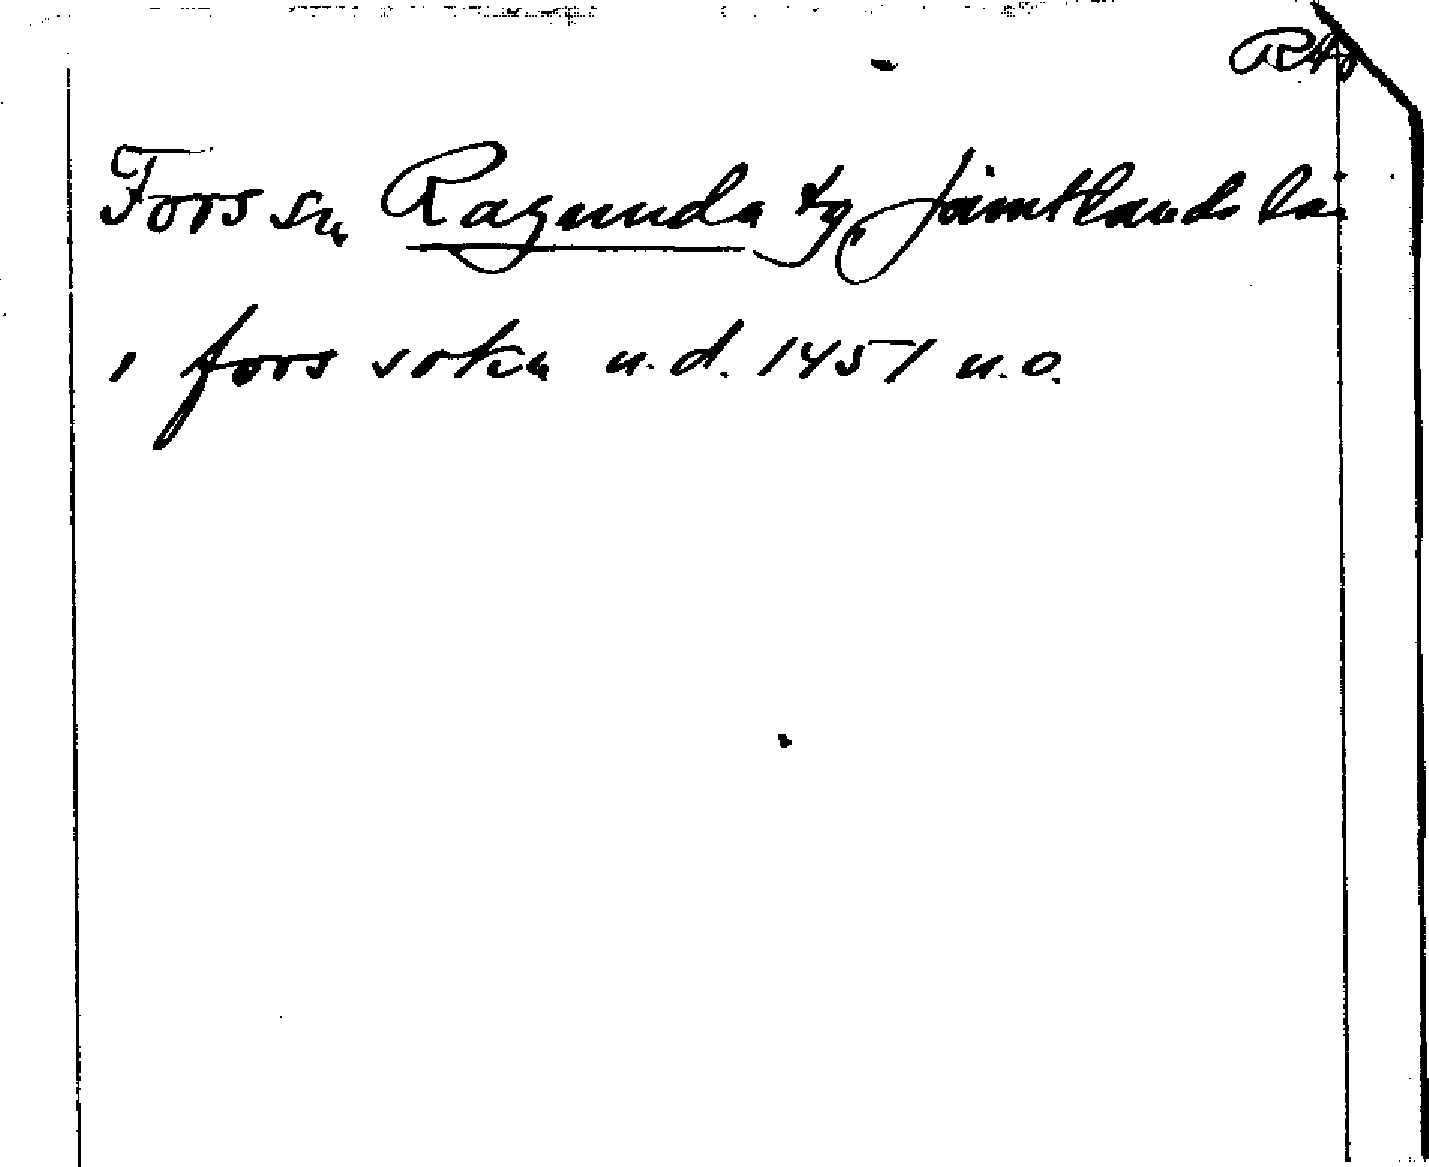 RAp
Fors sn Ragunda tg Jämtlands län
i fors sokn u.d. 1451 u.o.